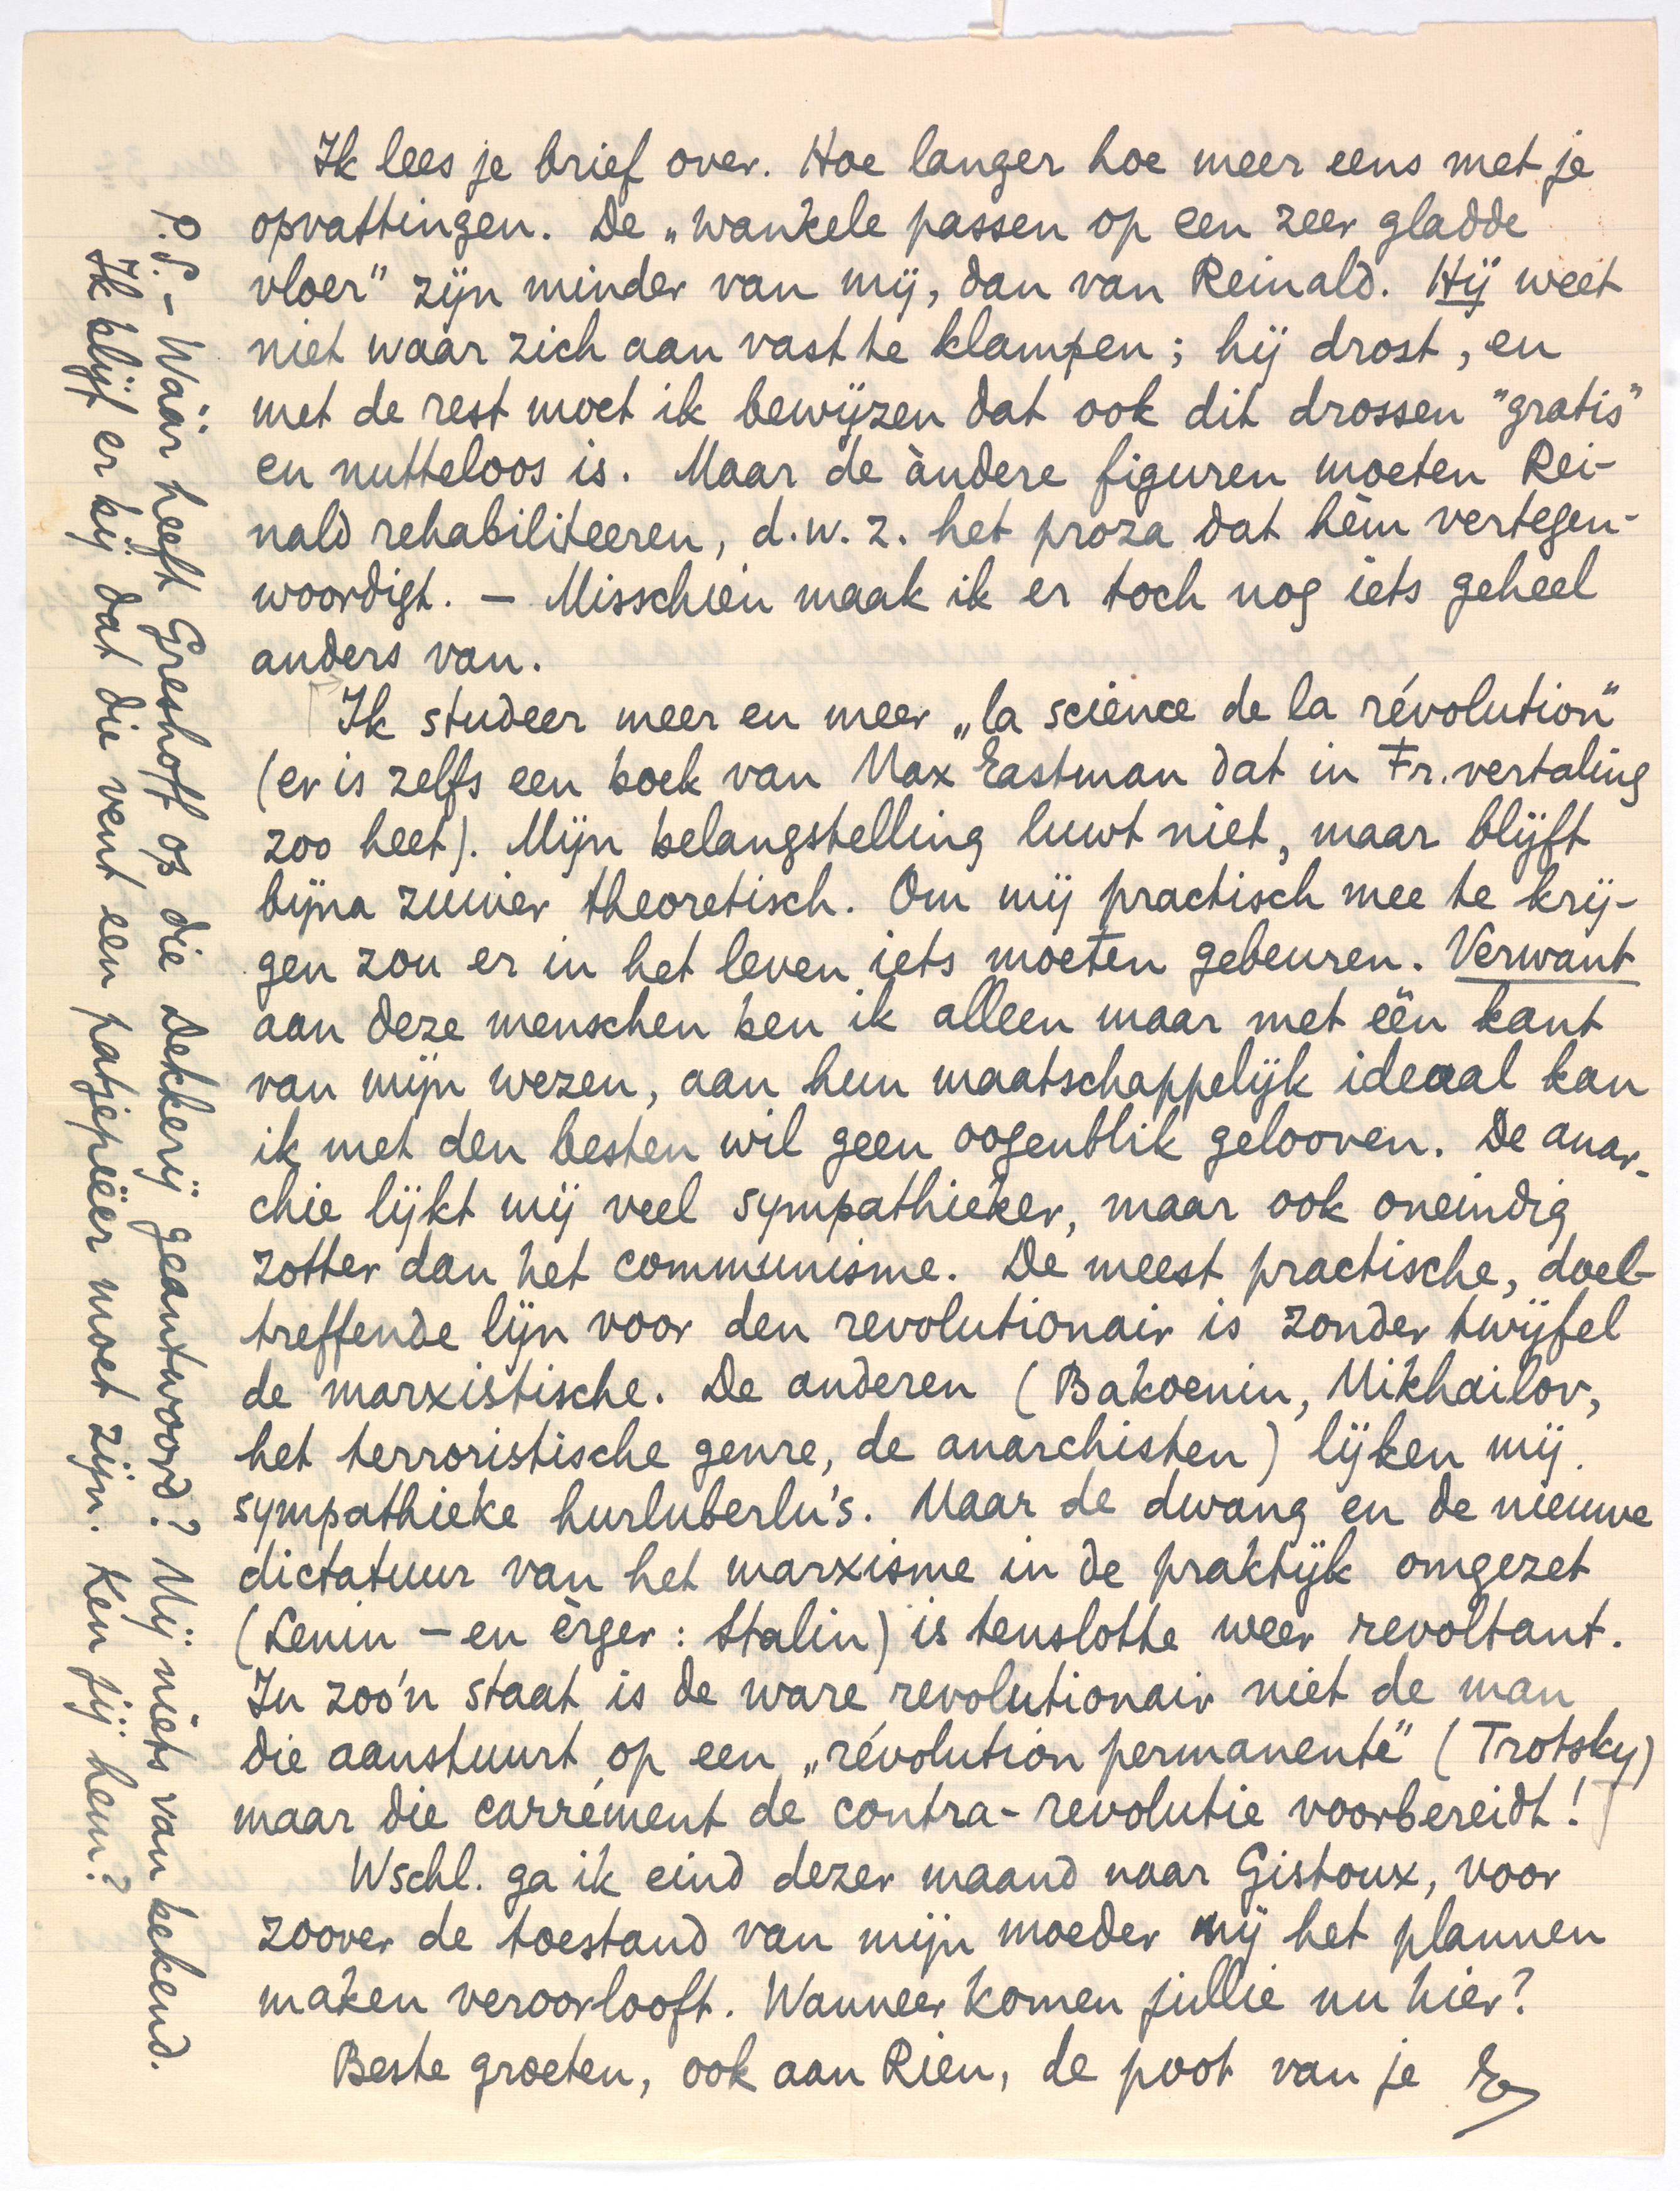 Ik lees je brief over. Hoe langer hoe meer eens met je
opvattingen. De „wankele passen op een zeer gladde
vloer” zijn minder van mij, dan van Reinald. Hij weet
niet waar zich aan vast te klampen; hij drost, en
met de rest moet ik bewijzen dat ook dit drossen "gratis"
en nutteloos is. Maar de àndere figuren moeten Rei-
nald rehabiliteeren, d.w.z. het proza dat hèm vertegen-
woordigt. — Misschien maak ik er toch nog iets geheel
anders van.
Ik studeer meer en meer „la science de la révolution”
(er is zelfs een boek van Max Eastman dat in Fr. vertaling
zoo heet). Mijn belangstelling luwt niet, maar blijft
bijna zuiver theoretisch. Om mij practisch mee te krij-
gen zou er in het leven iets moeten gebeuren. Verwant
aan deze menschen ben ik alleen maar met één kant
van mijn wezen, aan hun maatschappelijk ideaal kan
ik met den besten wil geen oogenblik gelooven. De anar-
chie lijkt mij veel sympathieker, maar ook oneindig
zotter dan het communisme. De meest practische, doel-
treffende lijn voor den revolutionair is zonder twijfel
de marxistische. De anderen (Bakoenin, Mikhailov,
het terroristische genre, de anarchisten) lijken mij
sympathieke hurluberlu's. Maar de dwang en de nieuwe
dictatuur van het marxisme in de praktijk omgezet
(Lenin — en èrger: Stalin) is tenslotte weer revoltant.
In zoo'n staat is de ware revolutionair niet de man
die aanstuurt op een „révolution permanente” (Trotsky)
maar die carrément de contra-revolutie voorbereidt!
Wschl. ga ik eind dezer maand naar Gistoux, voor
zoover de toestand van mijn moeder mij het plannen
maken veroorlooft. Wanneer komen jullie nu hier?
Beste groeten, ook aan Rien, de poot van je E
P.S. — Wáár heeft Greshoff op die Dekkerij geantwoord? Mij niets van bekend.
Ik blijf er bij dat die vent een patjepeeër moet zijn. Ken jij hem?